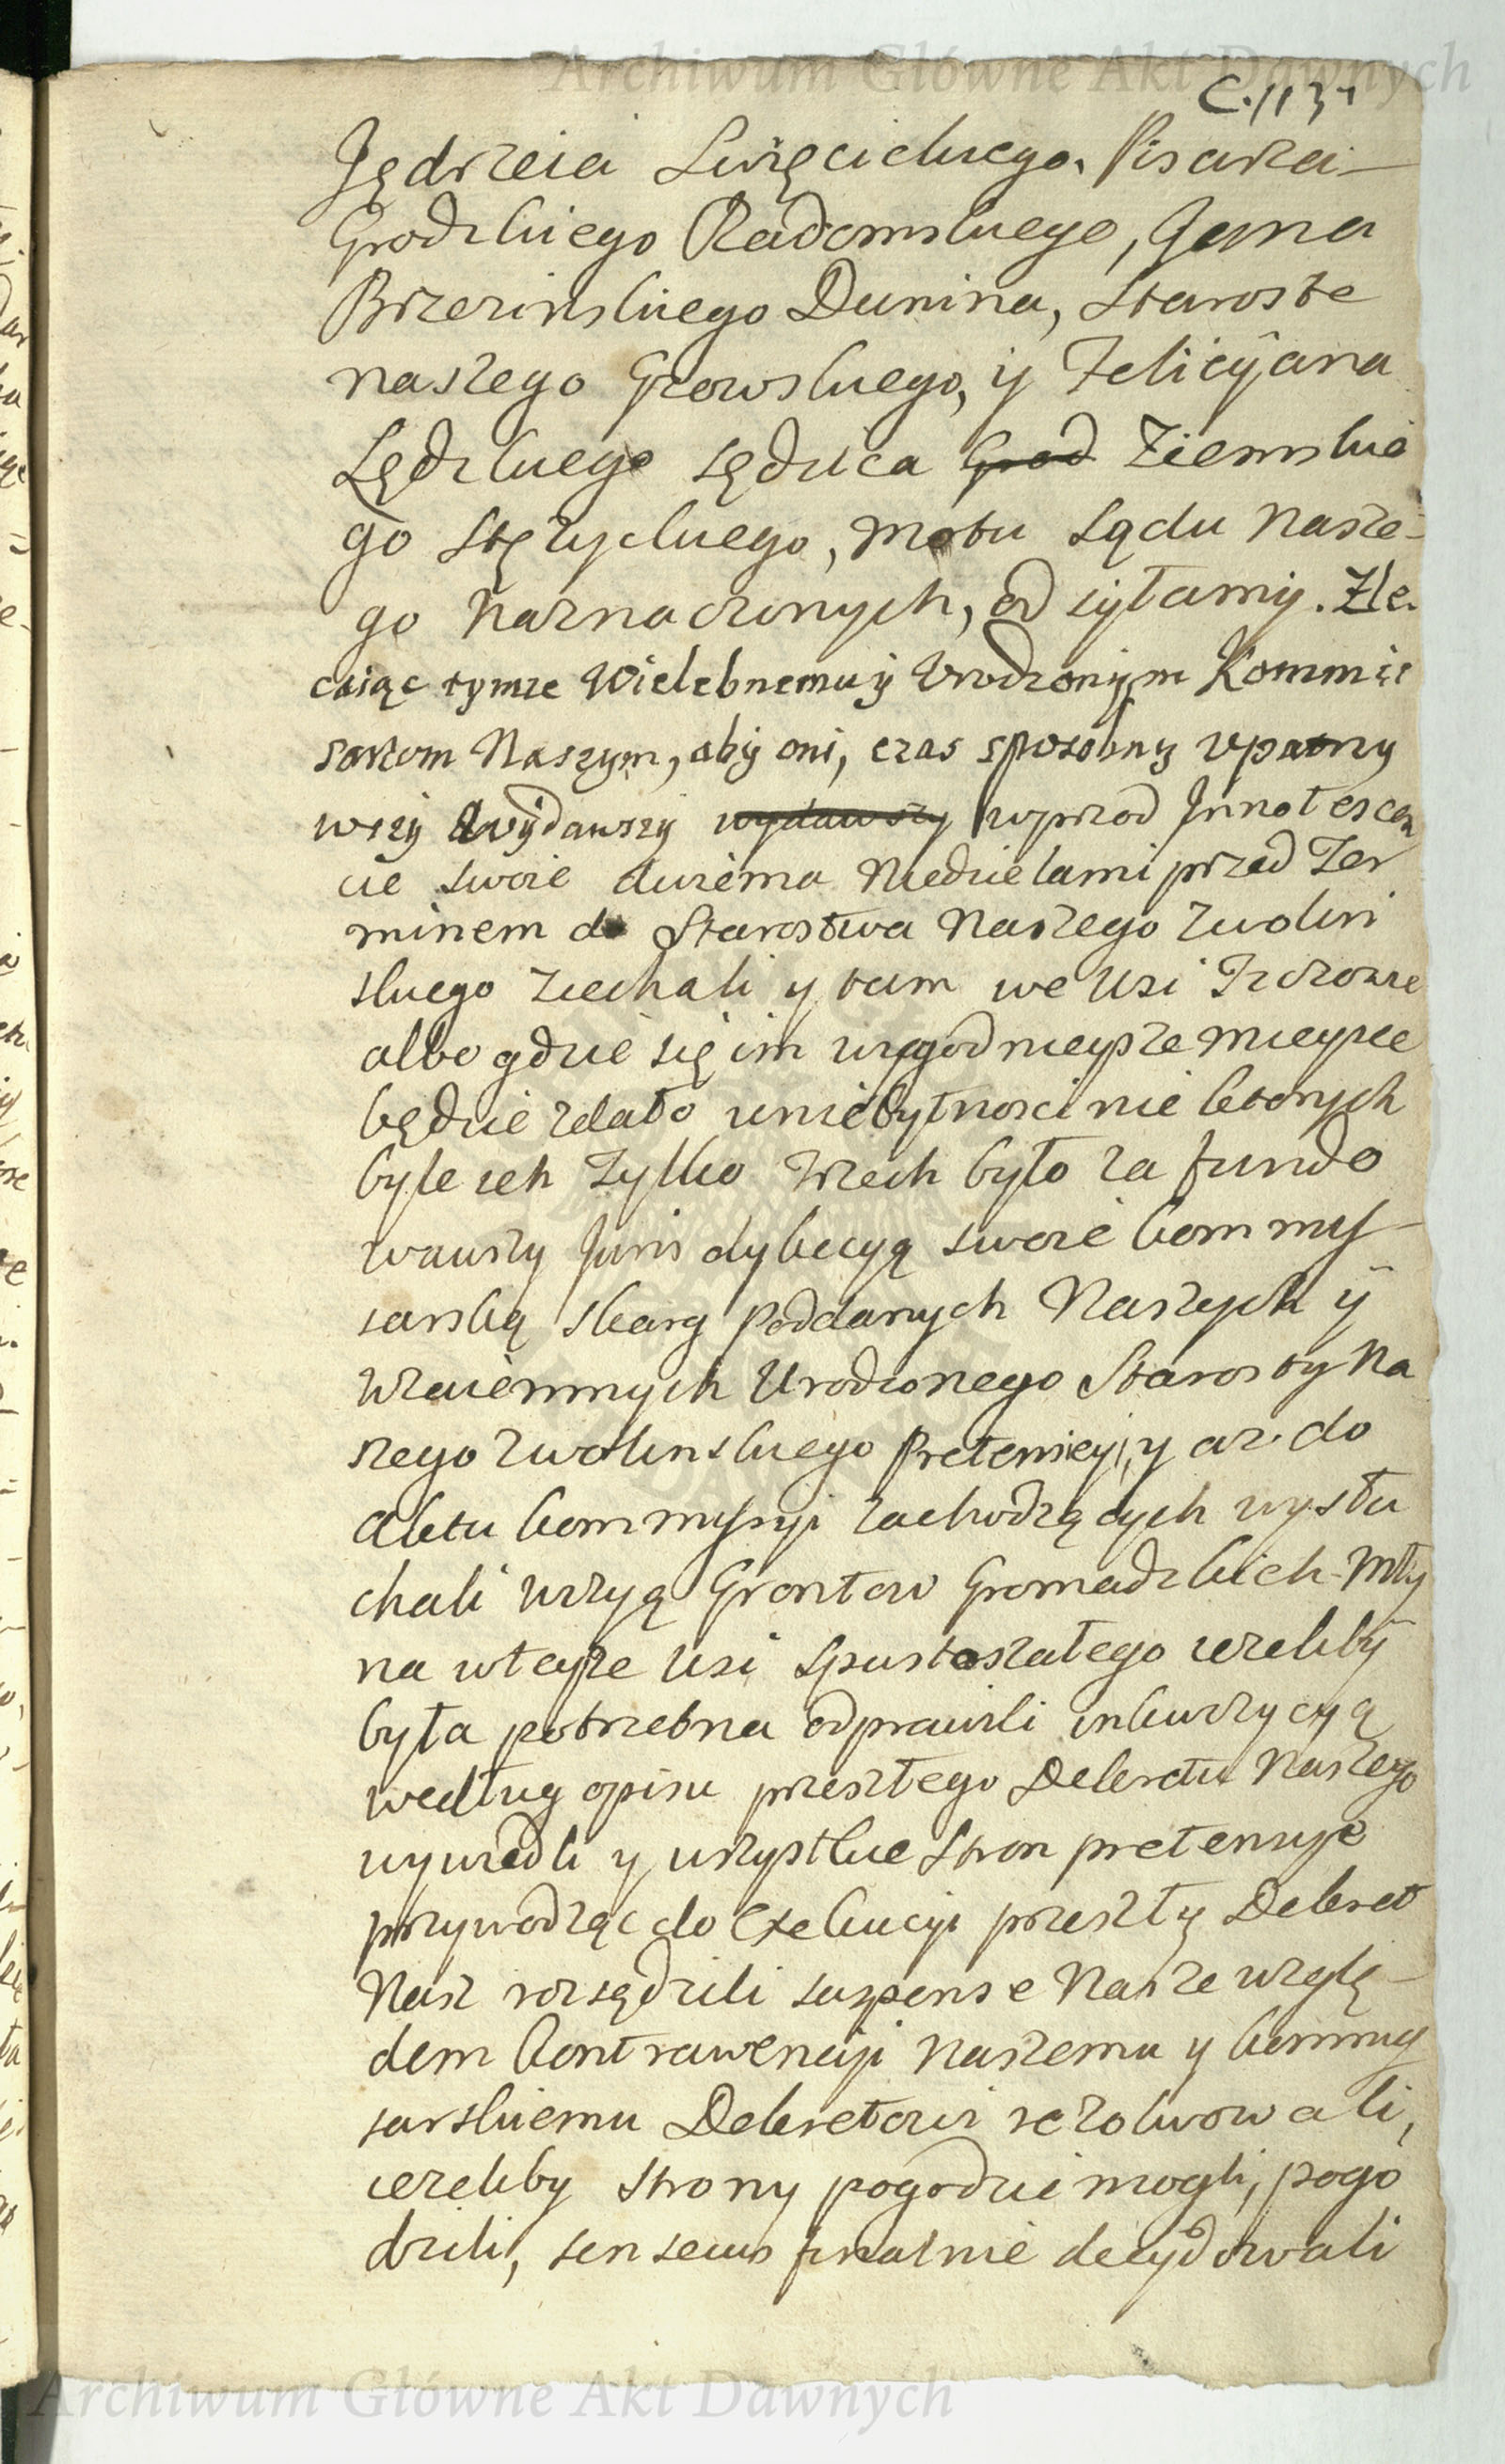 Archiwum Główne Akt Dawnych
Jędrzeia Swięcickiego, Pisarza
Grodzkiego Radomskiego, Jana
Brzezinskiego Dunina, Staroste
naszego Grzowskiego, y Felicÿana
Lędzkiego sędzica Grod Ziemskie
go Stęzyckiego, motu Sądu Nasze-
go Naznaczonych, od syłamy. Zle-
caiąc tymze Wielebnemu ÿ Vrodzonym Kommis
sarzom Naszym, aby oni, czas sposobny vpatrzy
wszy wÿdawszy wydawszy wprzod Innotescen
cie swoie dwiema Niedzielami przed Ter
minem do Starostwa Naszego Zwolin
skiego Ziechali y tam we Wsi
albo gdzie się im naygodnieysze mieysce
będzie zdało w niebytnosci nie ktorych
byle ich Tylko Trzech było za fundo
wawszy Juris dykcyą swoie kommys-
sarską skarg Poddanych Naszych ÿ
Wzaiemnych Urodzonego Starosty Na
szego Zwolinskiego Pretensiyi, y az do
aktu kommyssyi zachodzących wysłu
chali wizyą Grontow Gromadzkich Mły
na wteyze Wsi Spustoszałego iezeliby
była potrzebna odprawili inkwizycyą
według opisu przeszłego Dekretu Naszego
wywiedli y wszystkie Stron pretensye
przywodząc do Exekucyi przeszły Dekret
Nasz rozsądzili suspense Nasze wzglę-
dem kontrawencyi Naszemu y kommys
sarskiemu Dekretowi rezolwowali,
iezeliby strony pogodzic mogli, pogo
dzili, sin secus finalnie decydowali
Archiwum Główne Akt Dawnych